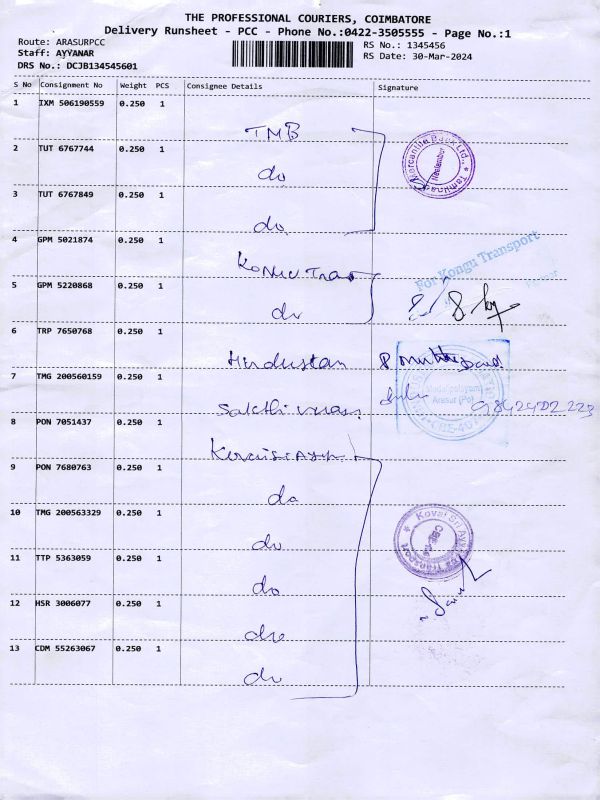 THE PROFESSIONAL COURIERS, COIMBATORE
Delivery Runsheet - PCC - Phone No.:0422-3505555 - Page No.:1
Route: ARASURPCC
RS No.: 1345456
Staff: AYYANAR
RS Date: 30-Mar-2024
DRS No.: DCJB134545601
S No Consignment No Weight PCS Consignee Details Signature
1 IXM 506190559 0.250 1
TMB
2 TUT 6767744 0.250 1
do
3 TUT 6767849 0.250 1
do
4 GPM 5021874 0.250 1
For Kongu Transport
5 GPM 5220868 0.250 1
do
6 TRP 7650768 0.250 1
Hindustan
7 TMG 200560159 0.250 1
Arasur (Po)
Sakthi
8 PON 7051437 0.250 1
9 PON 7680763 0.250 1
do
10 TMG 200563329 0.250 1
Kovai Sri
do
11 TTP 5363059 0.250 1
do
12 HSR 3006077 0.250 1
do
13 CDM 55263067 0.250 1
do